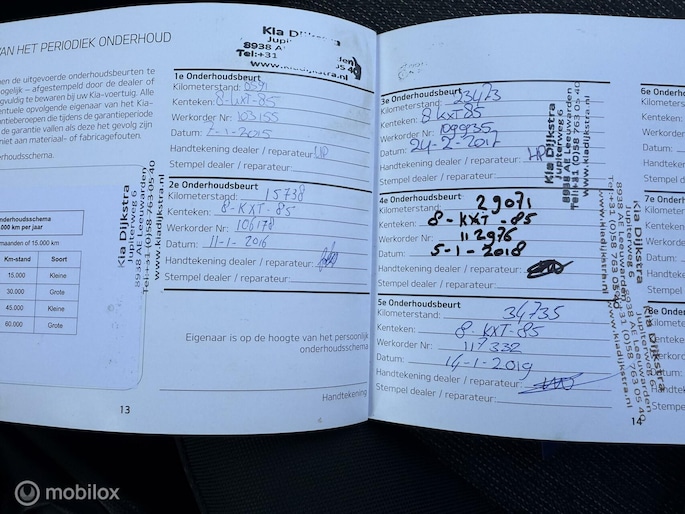 VAN HET PERIODIEK ONDERHOUD
en de uitgevoerde onderhoudsbeurten te
ogelijk – afgestempeld door de dealer of
gvuldig te bewaren bij uw Kia-voertuig. Alle
entuele opvolgende eigenaar van het Kia-
rantieberoepen die tijdens de garantieperiode
de garantie vallen als deze het gevolg zijn
niet aan materiaal- of fabricagefouten.
dsschema.
Kia Dijkstra
8938 A
Tel:+31
www.kiadijkstra.nl
1e Onderhoudsbeurt
Kilometerstand:
Kenteken: 8-KXT-85
Werkorder Nr: 103155
Datum: 2-1-2015
Handtekening dealer / reparateur:
Stempel dealer / reparateur:
2e Onderhoudsbeurt
Kilometerstand: 15738
Kenteken: 8-KXT-85
Werkorder Nr: 106178
Datum: 11-1-2016
Handtekening dealer / reparateur:
Stempel dealer / reparateur:
Kia Dijkstra
Jupiterweg 6
8938 AE Leeuwarden
Tel:+31 (0)58-763 05 40
nderhoudsschema
.000 km per jaar
maanden of 15.000 km
Km-stand Soort
15.000 Kleine
30.000 Grote
45.000 Kleine
60.000 Grote
Eigenaar is op de hoogte van het persoonlijk
onderhoudsschema
Handtekening
13
3e Onderhoudsbeurt
Kilometerstand: 23473
Kenteken: 8 KXT 85
Werkorder Nr: 109935
Datum: 24-2-2017
Handtekening dealer / reparateur:
Stempel dealer / reparateur:
Kia Dijkstra
Jupiterweg 6
8938 AE Leeuwarden
Tel:+31 (0)58 763 05 40
www.kiadijkstra.nl
4e Onderhoudsbeurt
Kilometerstand: 29071
Kenteken: 8-KXT-85
Werkorder Nr: 112976
Datum: 5-1-2018
Handtekening dealer / reparateur:
Stempel dealer / reparateur:
Kia Dijkstra
Jupiterweg 6
8938 AE Leeuwarden
www.kiadijkstra.nl
5e Onderhoudsbeurt
Kilometerstand: 34735
Kenteken: 8-KXT-85
Werkorder Nr: 117332
Datum: 14-1-2019
Handtekening dealer / reparateur:
Stempel dealer / reparateur:
Kia Dijkstra
Jupiterweg 6
8938 AE Leeuwarden
www.kiadijkstra.nl
6e Onderho
Kilometerst
Kenteken:
Werkorder
Datum:
Handteken
Stempel d
7e Onder
Kilomete
8e Onde
14
mobilox